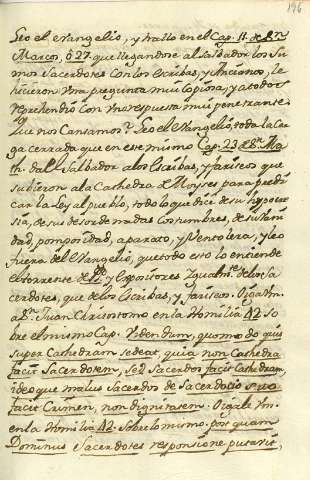 196
Leo el evangelio, y hallo en el Cap. 11. de Sn.
Marcos, v. 27. que llegandose al Salbador los Su-
mos Sacerdotes con los escribas, y Ancianos, le
hicieron una pregunta mui copiosa, y a todos
reprehendió con una respuesta mui penetrante
que nos Cansamos? Leo el Evangelio, toda la Car-
ga cerrada que en este mismo Cap. 23. de Sn. Ma-
th. da el Salbador a los escribas, y fariseos que
subieron a la Cathedra de Moyses para predi-
car la ley al pueblo, todo lo que dice de su hypocre-
sia, de sus desordenadas Costumbres, de su Vani-
dad, pomposidad, aparato, y Ventolera, y leo
fuera del evangelio, que todo esto lo entiende
el torrente de PP. y expositores igualmte. de los Sa-
cerdotes, que de los escribas, y fariseos. Oiga Vm.
a Sn. Juan Chrisostomo en la Homilia 42. So-
bre el mismo Cap. Videndum, quomodo quis
super Cathedram sedeat, quia non Cathedra
facit Sacerdotem, sed Sacerdos facit Cathedram,
ideo que malus Sacerdos de Sacerdocio suo
facit Crimen, non dignitatem. Oigale Vm.
en la Homilia 42. Sobre lo mismo. postquam
Dominus Sacerdotes responsione